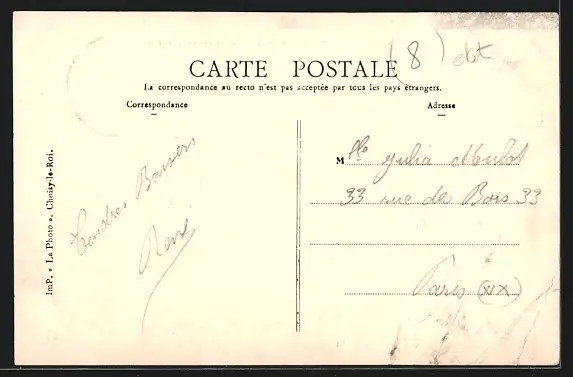 CARTE POSTALE
(8) état
La correspondance au recto n'est pas acceptée par tous les pays étrangers.
Correspondance
Adresse
Tendres Baisers
René
Mlle Julia Mulot
33 rue des Bois 33
Paris (XIX)
Imp. « La Photo », Choisy-le-Roi.